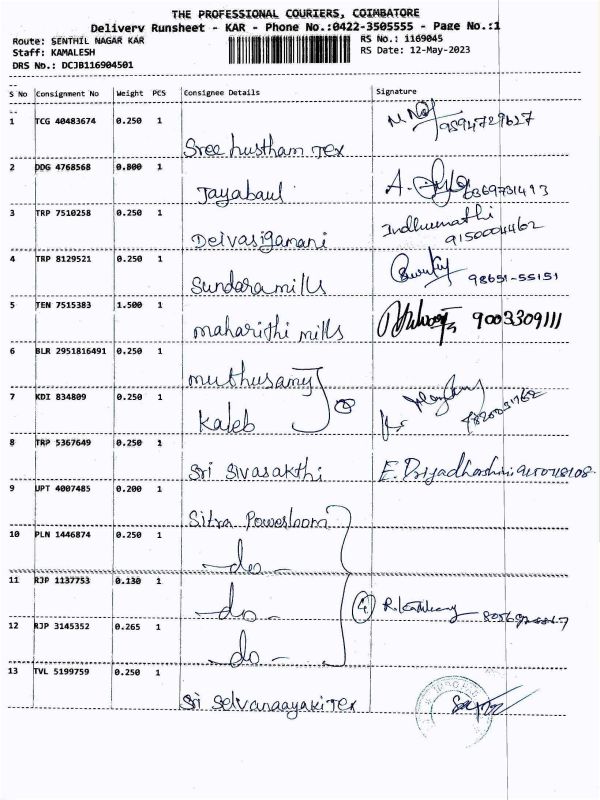 THE PROFESSIONAL COURIERS, COIMBATORE
Delivery Runsheet - KAR - Phone No.:0422-3505555 - Page No.:1
Route: SENTHIL NAGAR KAR
RS No.: 1169045
Staff: KAMALESH
RS Date: 12-May-2023
DRS No.: DCJB116904501
S No Consignment No Weight PCS Consignee Details Signature
1 TCG 40483674 0.250 1
Sree hustham Tex
2 DDG 4768568 0.800 1 A.
Jayabaul
3 TRP 7510258 0.250 1 Indhumathi
Deivasigamani 9150004462
4 TRP 8129521 0.250 1
Sundara mills 98651-55151
5 TEN 7515383 1.500 1 9003309111
maharithi mills
6 BLR 2951816491 0.250 1
muthusamy
7 KDI 834809 0.250 1 2
Kaleb
8 TRP 5367649 0.250 1
Sri Sivasakthi E. Priyadharshini
9 UPT 4007485 0.200 1
Sitra Powerloom
10 PLN 1446874 0.250 1
-do-
11 RJP 1137753 0.130 1
-do- 4
12 RJP 3145352 0.265 1
-do-
13 TVL 5199759 0.250 1
Sri Selvanaayaki Tex